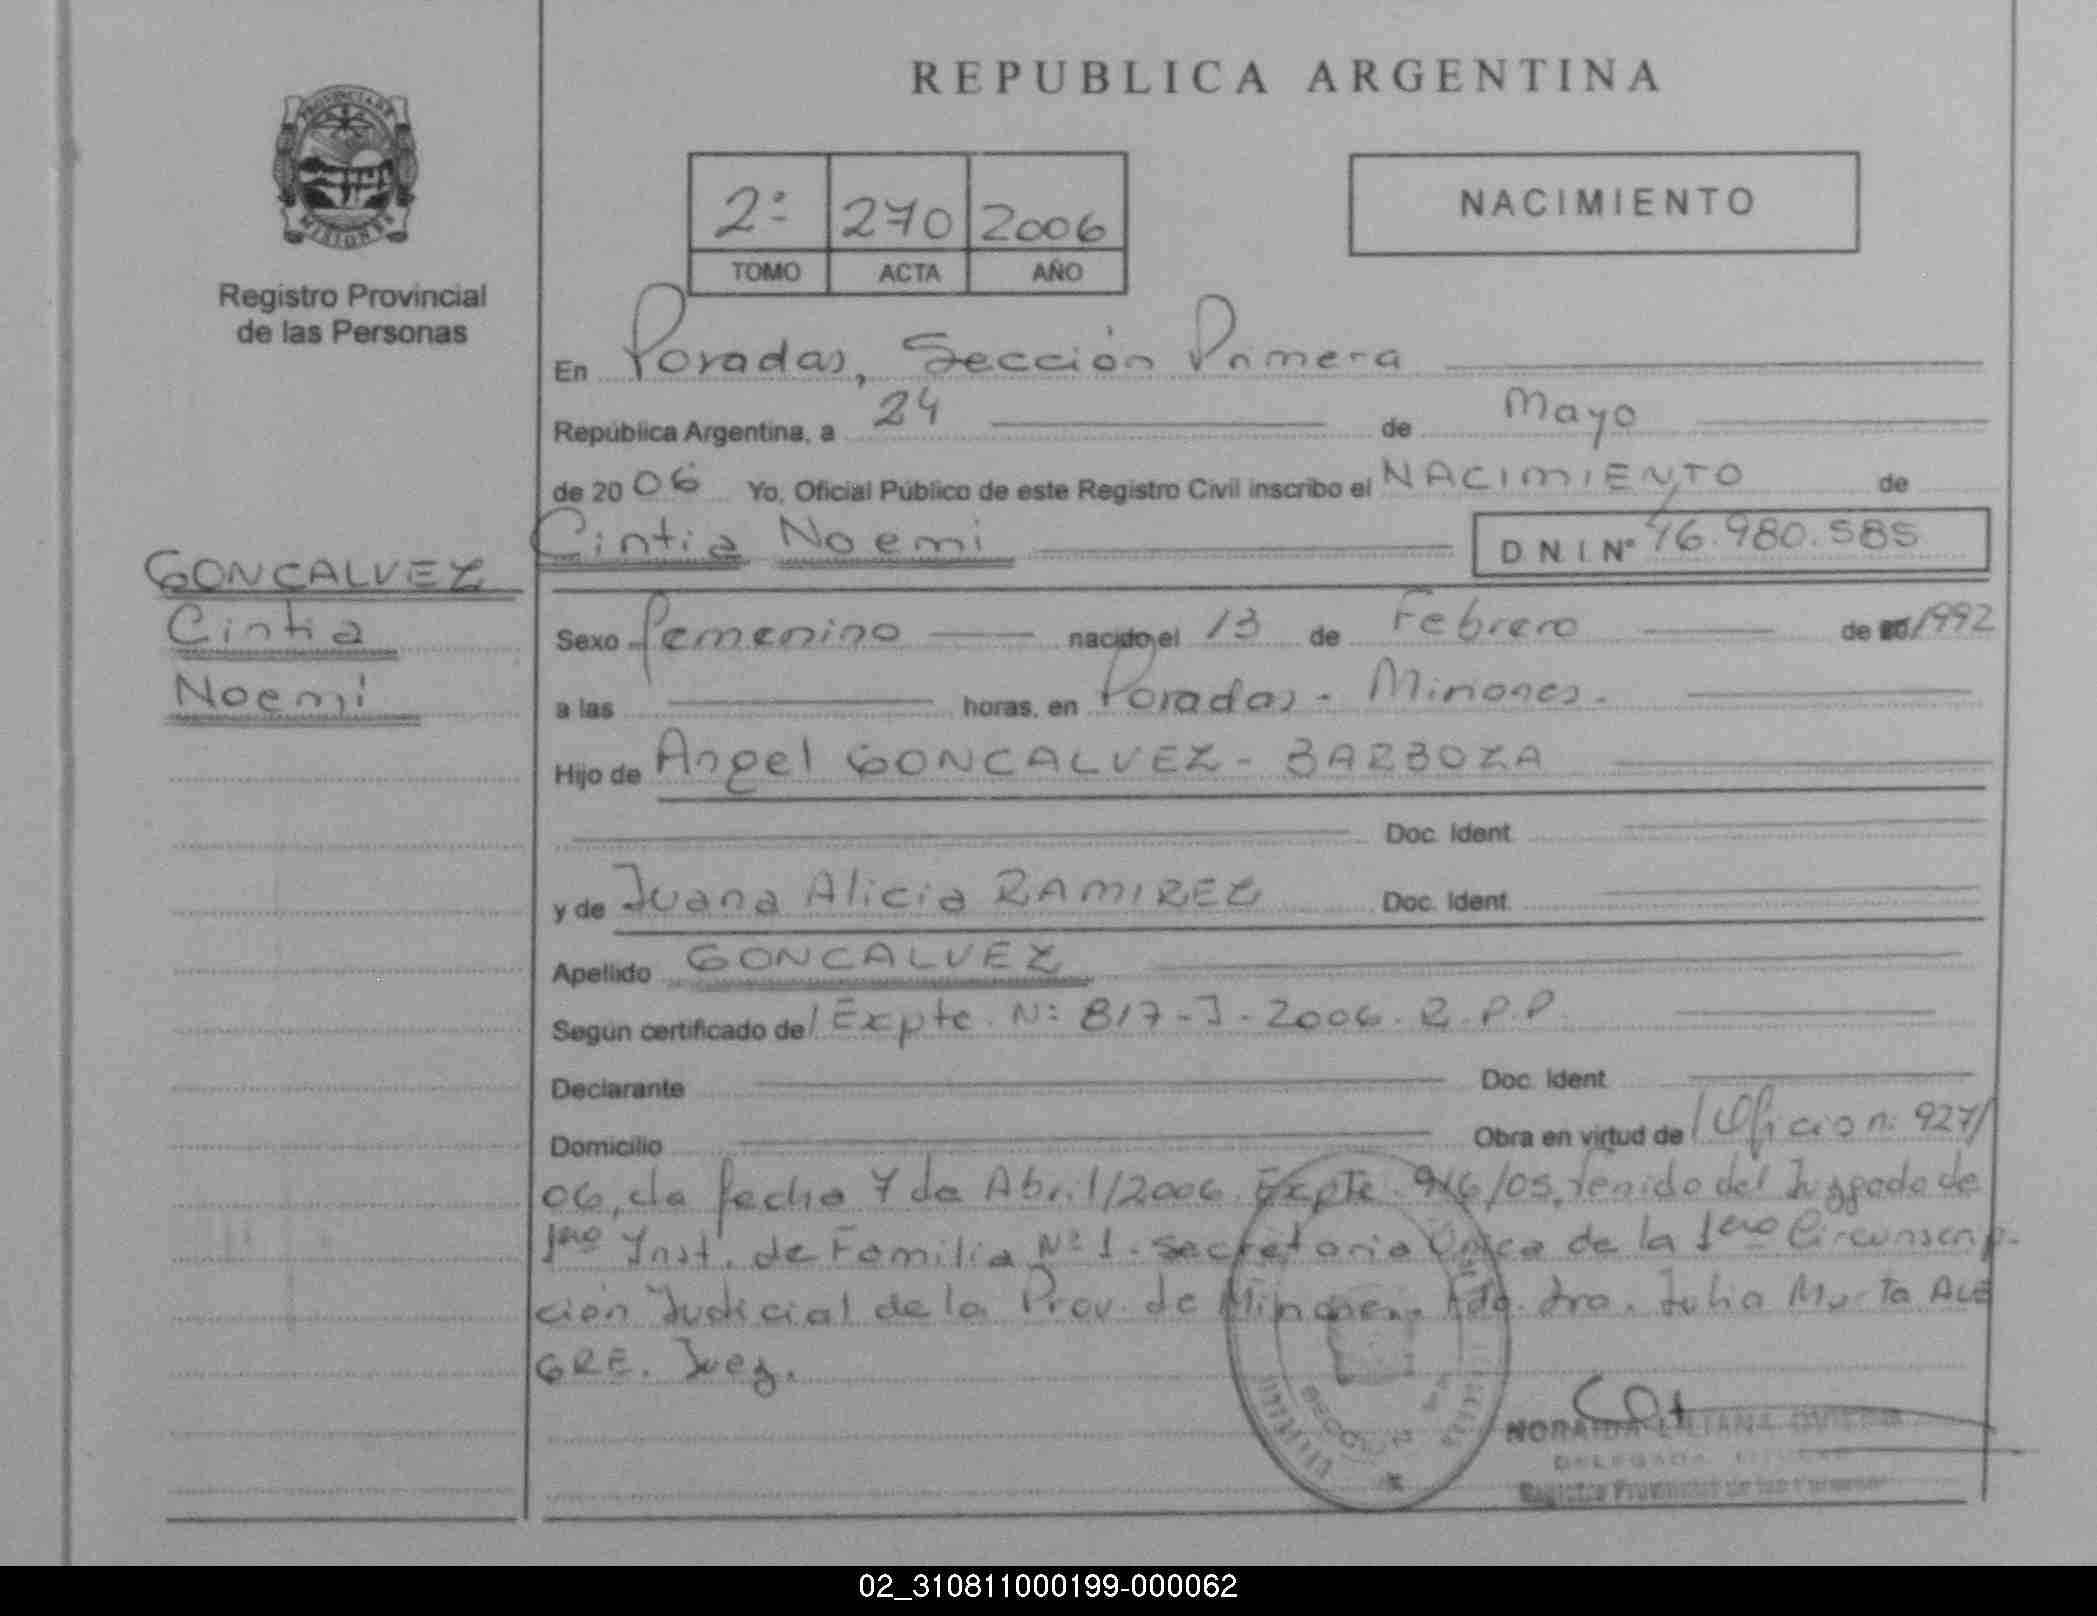 REPUBLICA ARGENTINA
PROVINCIA DE
MISIONES
Registro Provincial
de las Personas
2º 270 2006
TOMO ACTA AÑO
NACIMIENTO
En Posadas, Sección Primera
República Argentina, a 24 de Mayo
de 2006 Yo, Oficial Público de este Registro Civil inscribo el NACIMIENTO de
Cintia Noemi D N I Nº 46.980.585
GONCALVEZ
Cintia
Noemi
Sexo femenino nacido el 13 de Febrero de 1992
a las horas, en Posadas - Misiones.
Hijo de Angel GONCALVEZ - BARBOZA
Doc. Ident.
y de Juana Alicia RAMIREZ Doc. Ident.
Apellido GONCALVEZ
Según certificado de Expte. Nº 817-J-2006. R.P.P.
Declarante Doc. Ident.
Domicilio Obra en virtud de Oficio n: 927/
06, de fecha 7 de Abril/2006. Expte. 946/05, venido del Juzgado de
1era Inst. de Familia Nº 1. Secretaria Única de la 1era Circunscrip-
ción Judicial de la Prov. de Misiones. Fdo. Dra. Julia Marta ALE
GRE. Juez.
SECCION
NORAIDA LILIANA
DELEGADA
Registro Provincial de las Personas
02_310811000199-000062